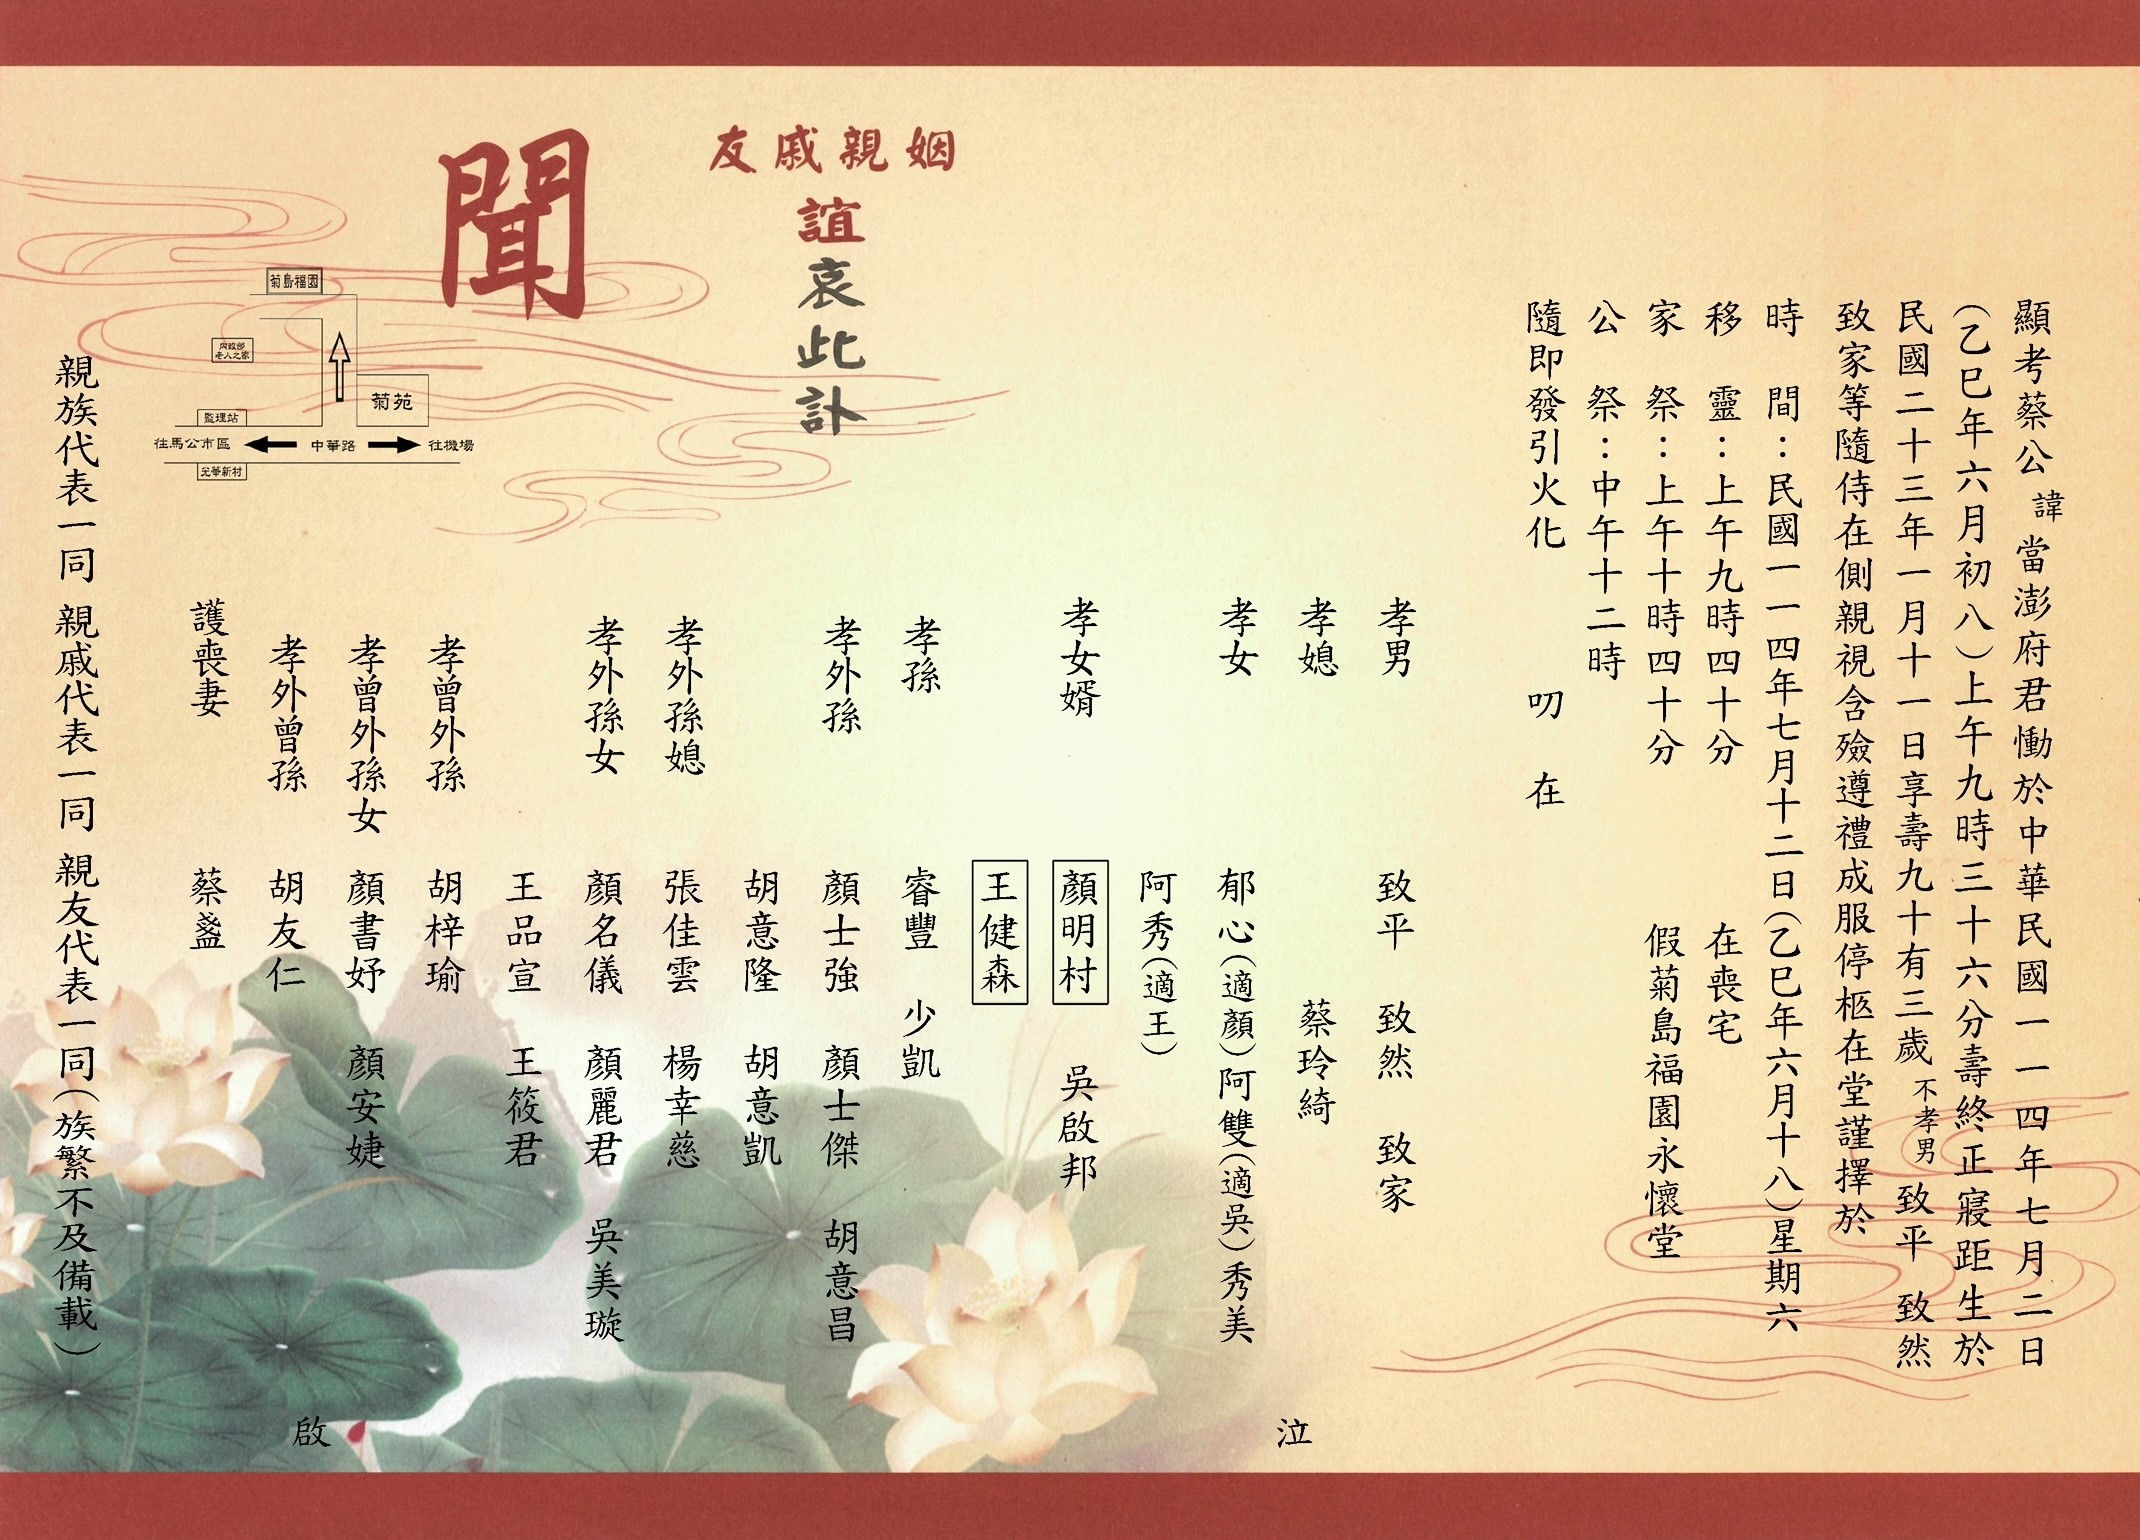 顯考蔡公諱當澎府君慟於中華民國一一四年七月二日
(乙巳年六月初八)上午九時三十六分壽終正寢距生於
民國二十三年一月十一日享壽九十有三歲不孝男致平 致然
致家等隨侍在側親視含殮遵禮成服停柩在堂謹擇於
時 間：民國一一四年七月十二日(乙巳年六月十八)星期六
移 靈：上午九時四十分 在喪宅
家 祭：上午十時四十分 假菊島福園永懷堂
公 祭：中午十二時
隨即發引火化 叨 在
孝男 致平 致然 致家
孝媳 蔡玲綺
泣
孝女 郁心(適顏)阿雙(適吳)秀美
阿秀(適王)
孝女婿 顏明村 吳啟邦
王健森
孝孫 睿豐 少凱
孝外孫 顏士強 顏士傑 胡意昌
胡意隆 胡意凱
孝外孫媳 張佳雲 楊幸慈
孝外孫女 顏名儀 顏麗君 吳美璇
王品宣 王筱君
孝曾外孫 胡梓瑜
孝曾外孫女 顏書妤 顏安婕
孝外曾孫 胡友仁
啟
護喪妻 蔡盞
親族代表一同 親戚代表一同 親友代表一同(族繁不及備載)
姻親戚友
誼哀此訃
聞
菊島福園
內政部
老人之家
菊苑
監理站
往馬公市區 中華路 往機場
光華新村